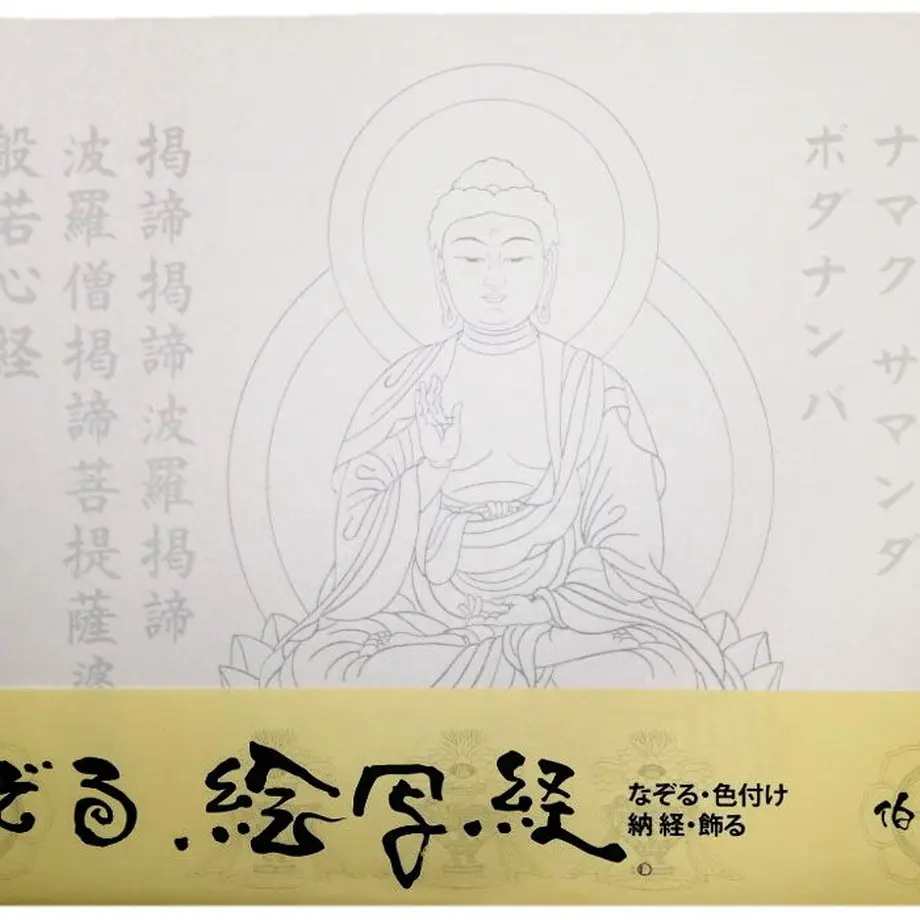 ナマク サマンダ
ボダナンバ
掲諦掲諦波羅掲諦
波羅僧掲諦菩提薩婆
般若心経
ぞる 絵写経
なぞる・色付け
納経・飾る
伯